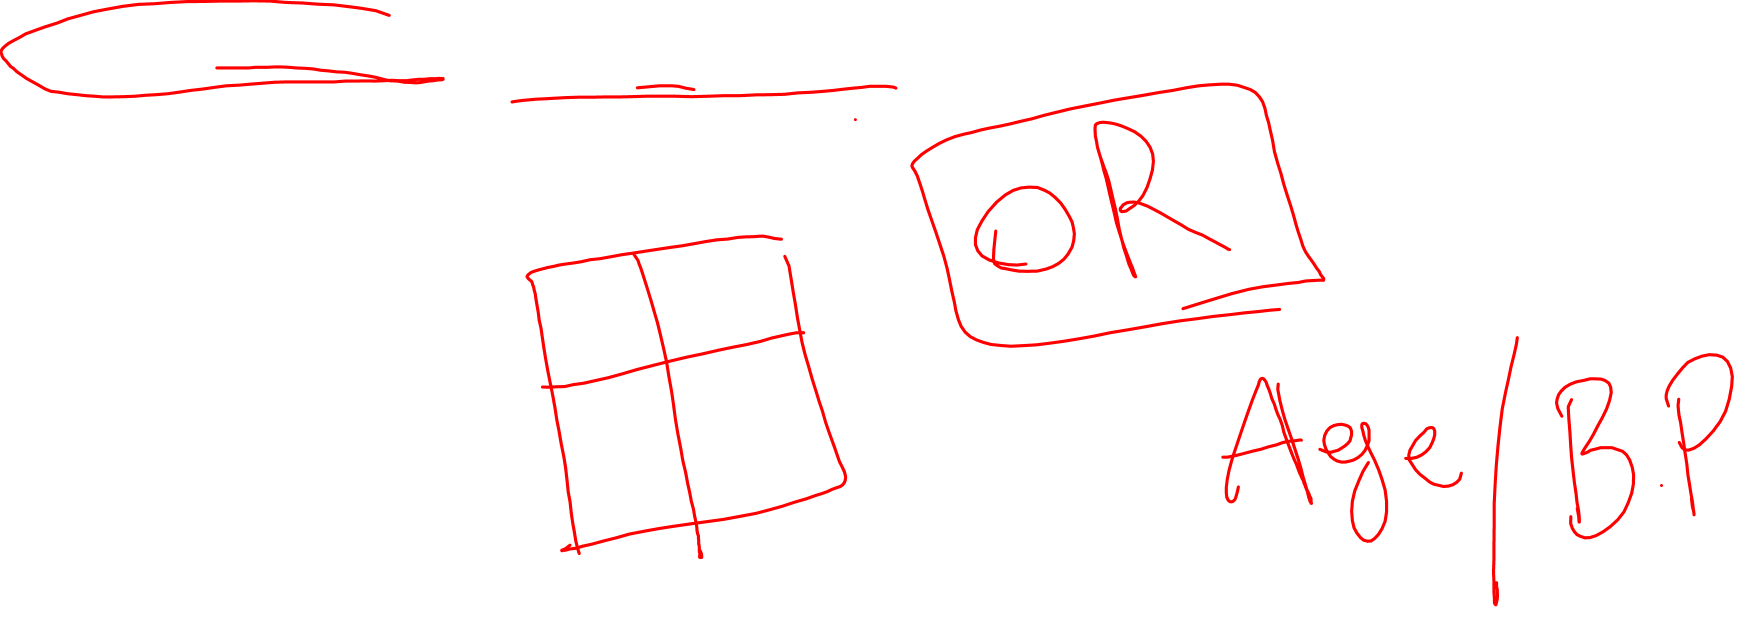 OR
Age/B.P